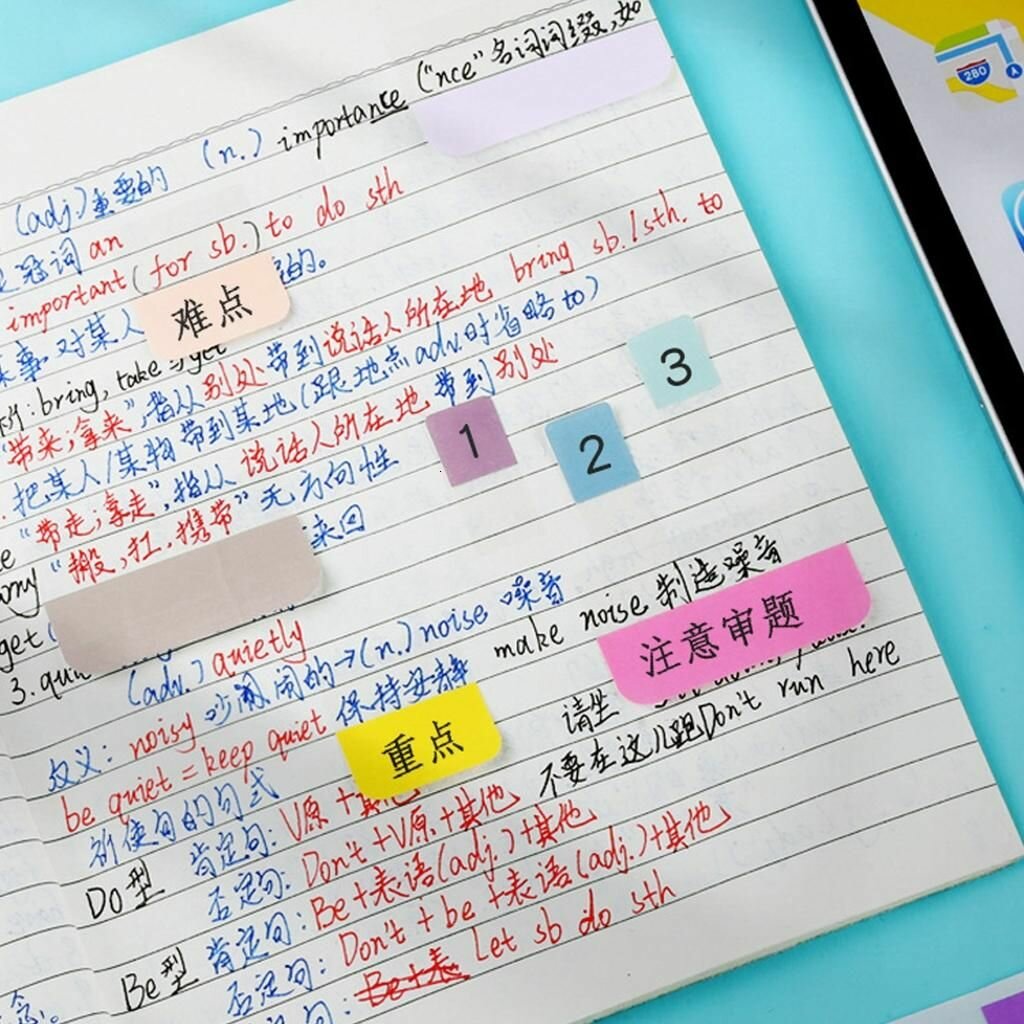 (n.) importance ("nce"名词词缀,如
(adj.)重要的
冠词 an
important(for sb.)to do sth
事对某人 的。
难点
bring, take与get
"带来;拿来",指从别处带到说话人所在地 bring sb./sth. to
把某人/某物带到某地(跟地点adv.时省略to)
"带走;拿走",指从说话人所在地带到别处
1
2
3
"搬,扛,携带"无方向性
来回
get
3. (adv.) quietly
反义: noisy 吵闹的→(n.)noise 噪音 make noise 制造噪音
注意审题
be quiet=keep quiet 保持安静
重点
请坐
祈使句的句式
不要在这儿跑Don't run here
Do型 肯定句: V原+其他
否定句: Don't+V原+其他
Be型 肯定句: Be+表语(adj.)+其他
否定句: Don't+be+表语(adj.)+其他
句: Let sb do sth
280